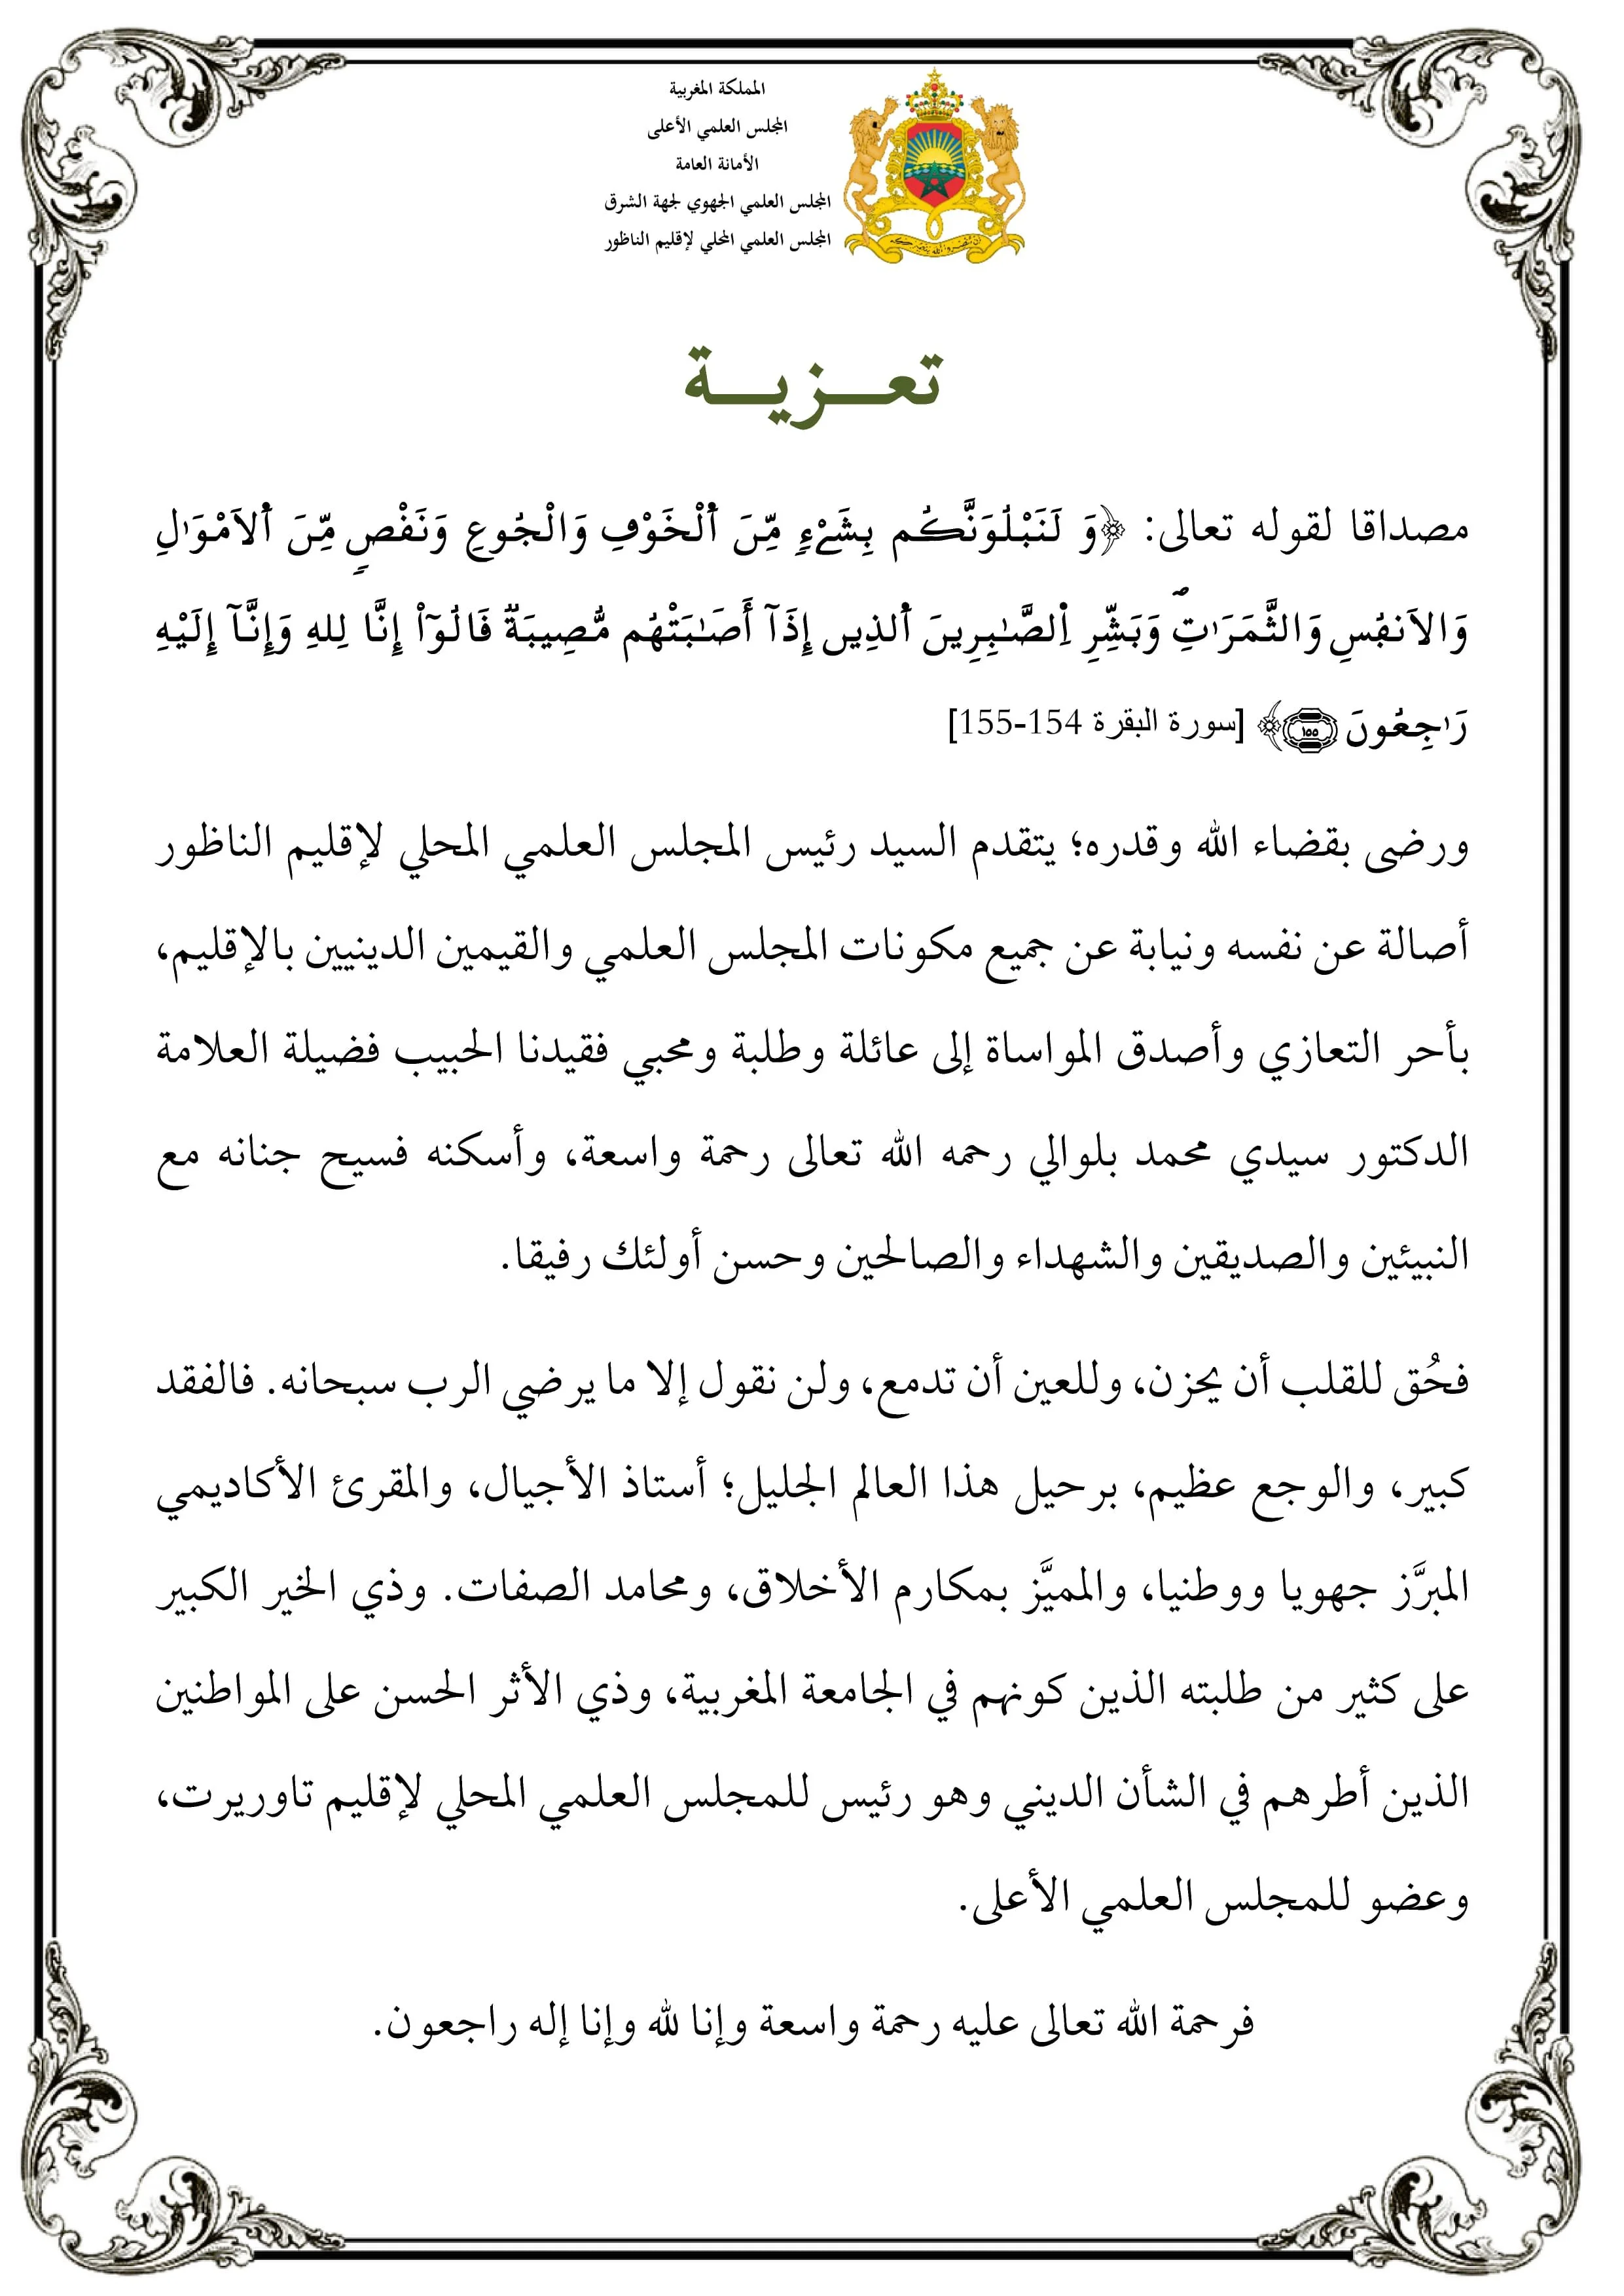 المملكة المغربية
المجلس العلمي الأعلى
الأمانة العامة
المجلس العلمي الجهوي لجهة الشرق
المجلس العلمي المحلي لإقليم الناظور
تعـــزيـــة
مصداقا لقوله تعالى: ﴿وَلَنَبْلُوَنَّكُم بِشَےْءٖ مِّنَ ٱلْخَوْفِ وَالْجُوعِ وَنَقْصٖ مِّنَ ٱلَامْوَٰلِ
وَالَانفُسِ وَالثَّمَرَٰتِۖ وَبَشِّرِ اِ۬لصَّٰبِرِينَ ٱلذِينَ إِذَآ أَصَٰبَتْهُم مُّصِيبَةٞ قَالُوٓاْ إِنَّا لِلهِ وَإِنَّآ إِلَيْهِ
رَٰجِعُونَ ١٥٥﴾ [سورة البقرة 154-155]
ورضى بقضاء الله وقدره؛ يتقدم السيد رئيس المجلس العلمي المحلي لإقليم الناظور
أصالة عن نفسه ونيابة عن جميع مكونات المجلس العلمي والقيمين الدينيين بالإقليم،
بأحر التعازي وأصدق المواساة إلى عائلة وطلبة ومحبي فقيدنا الحبيب فضيلة العلامة
الدكتور سيدي محمد بلوالي رحمه الله تعالى رحمة واسعة، وأسكنه فسيح جنانه مع
النبيئين والصديقين والشهداء والصالحين وحسن أولئك رفيقا.
فحُق للقلب أن يحزن، وللعين أن تدمع، ولن نقول إلا ما يرضي الرب سبحانه. فالفقد
كبير، والوجع عظيم، برحيل هذا العالم الجليل؛ أستاذ الأجيال، والمقرئ الأكاديمي
المبرَّز جهويا ووطنيا، والمميَّز بمكارم الأخلاق، ومحامد الصفات. وذي الخير الكبير
على كثير من طلبته الذين كونهم في الجامعة المغربية، وذي الأثر الحسن على المواطنين
الذين أطرهم في الشأن الديني وهو رئيس للمجلس العلمي المحلي لإقليم تاوريرت،
وعضو للمجلس العلمي الأعلى.
فرحمة الله تعالى عليه رحمة واسعة وإنا لله وإنا إله راجعون.